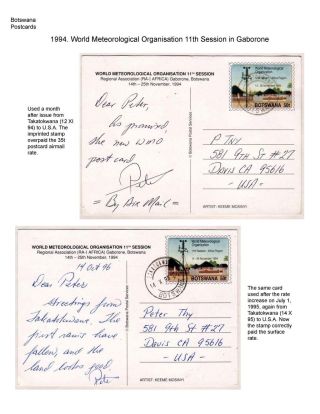 Botswana
Postcards
1994. World Meteorological Organisation 11th Session in Gaborone
Used a month
after issue from
Takatokwana (12 XI
94) to U.S.A. The
imprinted stamp
overpaid the 35t
postcard airmail
rate.
WORLD METEOROLOGICAL ORGANISATION 11TH SESSION
Regional Association (RA-I AFRICA) Gaborone, Botswana
14th - 25th November, 1994
Dear Peter,
As promised,
the new WMO
post card.
Pete
= By Air Mail =
© Botswana Postal Services
World Meteorological
Organization
BOTSWANA 50t
P Thy
581 9th St #27
Davis CA 95616
- USA -
ARTIST: KEEME MOSINYI
WORLD METEOROLOGICAL ORGANISATION 11TH SESSION
Regional Association (RA-I AFRICA) Gaborone, Botswana
14th - 25th November, 1994
14 Oct 96
Dear Peter
Greetings from
Takatokwane. The
first rains have
fallen, and the
land looks good.
Pete
© Botswana Postal Services
World Meteorological
Organization
BOTSWANA 50t
Peter Thy
581 9th St #27
Davis CA 95616
- USA -
ARTIST: KEEME MOSINYI
The same card
used after the rate
increase on July 1,
1995, again from
Takatokwana (14 X
95) to U.S.A. Now
the stamp correctly
paid the surface
rate.